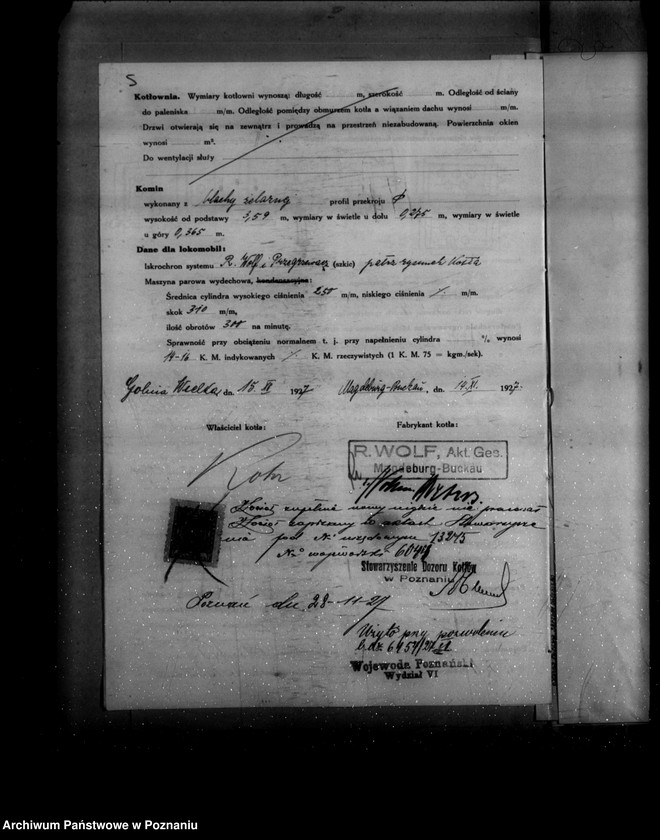 5
Kotłownia. Wymiary kotłowni wynoszą: długość m, szerokość m. Odległość od ściany
do paleniska m/m. Odległość pomiędzy obmurzem kotła a wiązaniem dachu wynosi m/m.
Drzwi otwierają się na zewnątrz i prowadzą na przestrzeń niezabudowaną. Powierzchnia okien
wynosi m².
Do wentylacji służy
Komin
wykonany z blachy żelaznej profil przekroju
wysokość od podstawy 3,59 m, wymiary w świetle u dołu 0,275 m, wymiary w świetle
u góry 0,365 m.
Dane dla lokomobil:
Iskrochron systemu R. Wolf (szkic) patrz rysunek kotła
Maszyna parowa wydechowa, kondensacyjna:
Średnica cylindra wysokiego ciśnienia 250 m/m, niskiego ciśnienia /. m/m.
skok 310 m/m,
ilość obrotów 300 na minutę.
Sprawność przy obciążeniu normalnem t. j. przy napełnieniu cylindra % wynosi
14-16 K. M. indykowanych /. K. M. rzeczywistych (1 K. M. 75 = kgm./sek).
Golina Wielka, dn. 15. XI 1927 Magdeburg-Buckau, dn. 14. XI. 1927.
Właściciel kotła: Fabrykant kotła:
R. WOLF, Akt. Ges.
Magdeburg-Buckau
Kocioł zupełnie nowy nigdzie nie pracował
Kocioł zapisany w aktach Stowarzysze
nia pod No 13275
No
Stowarzyszenie Dozoru Kotłów
w Poznaniu
Poznań dn. 28-11-27
Użyto przy pozwoleniu
Wojewoda Poznański
Wydział VI
Archiwum Państwowe w Poznaniu